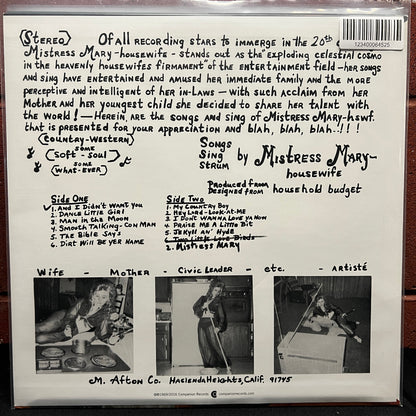 (Stereo) Of all recording stars to immerge in the 20th
Mistress Mary-housewife-stands out as the "exploding celestial cosmo
in the heavenly housewifes firmament" of the entertainment field-her songs
and sing have entertained and amused her immediate family and the more
perceptive and intelligent of her in-laws-with such acclaim from her
Mother and her youngest child she decided to share her talent with
the world!-Herein, are the songs and sing of Mistress Mary-hswf.
that is presented for your appreciation and blah, blah, blah.!!!
1234000064525
(Country-Western)
some
(Soft-Soul)
some
(What-Ever)
Songs
Sing
Strum
by Mistress Mary-
housewife
Produced from
Designed from
household budget
Side One
1. And I Didn't Want You
2. Dance Little Girl
3. Man in the Moon
4. Smooth Talking-Con Man
5. The Bible Says
6. Dirt Will Be Yer Name
Side Two
1. My Country Boy
2. Hey Lord-Look-At-Me
3. I Dont Wanna Love Ya Now
4. Praise Me A Little Bit
5. Jekyll An' Hyde
6. Two Little Love Birds
2. Mistress Mary
Wife - Mother - Civic Leader - etc. - Artisté
M. Afton Co. Hacienda Heights, Calif. 91745
Companion Records
companionrecords.com